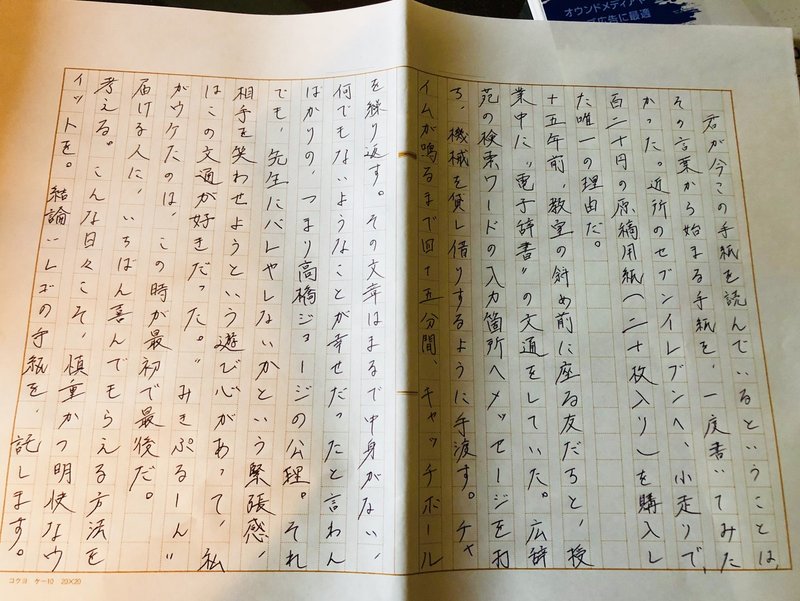 君が今この手紙を読んでいるということは、
その言葉から始まる手紙を、一度書いてみた
かった。近所のセブンイレブンへ、小走りで、
百二十円の原稿用紙(二十枚入り)を購入し
た唯一の理由だ。
十五年前、教室の斜め前に座る友だちと、授
業中に〝電子辞書〟の文通をしていた。広辞
苑の検索ワードの入力箇所へメッセージを打
ち、機械を貸し借りするように手渡す。チャ
イムが鳴るまで四十五分間、キャッチボール
を繰り返す。その文章はまるで中身がない、
何でもないようなことが幸せだったと言わん
ばかりの、つまり高橋ジョージの公理。それ
でも、先生にバレやしないかという緊張感、
相手を笑わせようという遊び心があって、私
はこの文通が好きだった。〝みきぷるーん〟
がウケたのは、この時が最初で最後だ。
届ける人に、いちばん喜んでもらえる方法を
考える。こんな日々こそ、慎重かつ明快なウ
イットを。結論:レゴの手紙を、託します。
コクヨ ケー10 20×20
オウンドメディアや
広告に最適